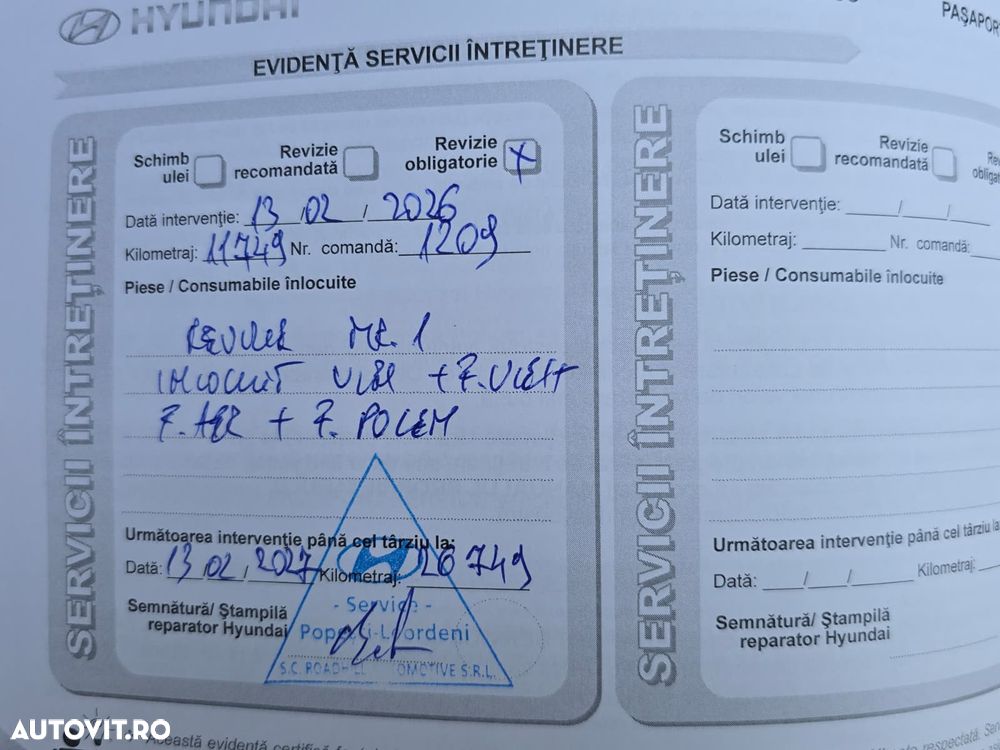 HYUNDAI
EVIDENŢĂ SERVICII ÎNTREŢINERE
SERVICII ÎNTREŢINERE
Schimb ulei
Revizie recomandată
Revizie obligatorie X
Dată intervenţie: 13 / 02 / 2026
Kilometraj: 11749 Nr. comandă: 1209
Piese / Consumabile înlocuite
NR. 1
+ F.
F. AER + F. POLEN
Următoarea intervenţie până cel târziu la:
Dată: 13 / 02 / 2027 Kilometraj: 26749
Semnătură/ Ştampilă
reparator Hyundai
- Service -
Popeşti-Leordeni
SERVICII ÎNTREŢINERE
Schimb ulei
Revizie recomandată
Dată intervenţie: / /
Kilometraj: Nr. comandă:
Piese / Consumabile înlocuite
Următoarea intervenţie până cel târziu la
Dată: / / Kilometraj:
Semnătură/ Ştampilă
reparator Hyundai
AUTOVIT.RO